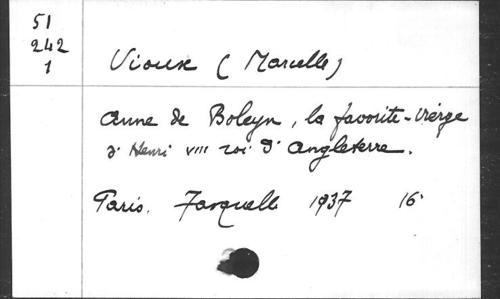 51
242
1
Vioux (Marcelle)
Anne de Boleyn, la favorite-vierge
d'Henri VIII roi d'Angleterre.
Paris. Fasquelle 1937 16°